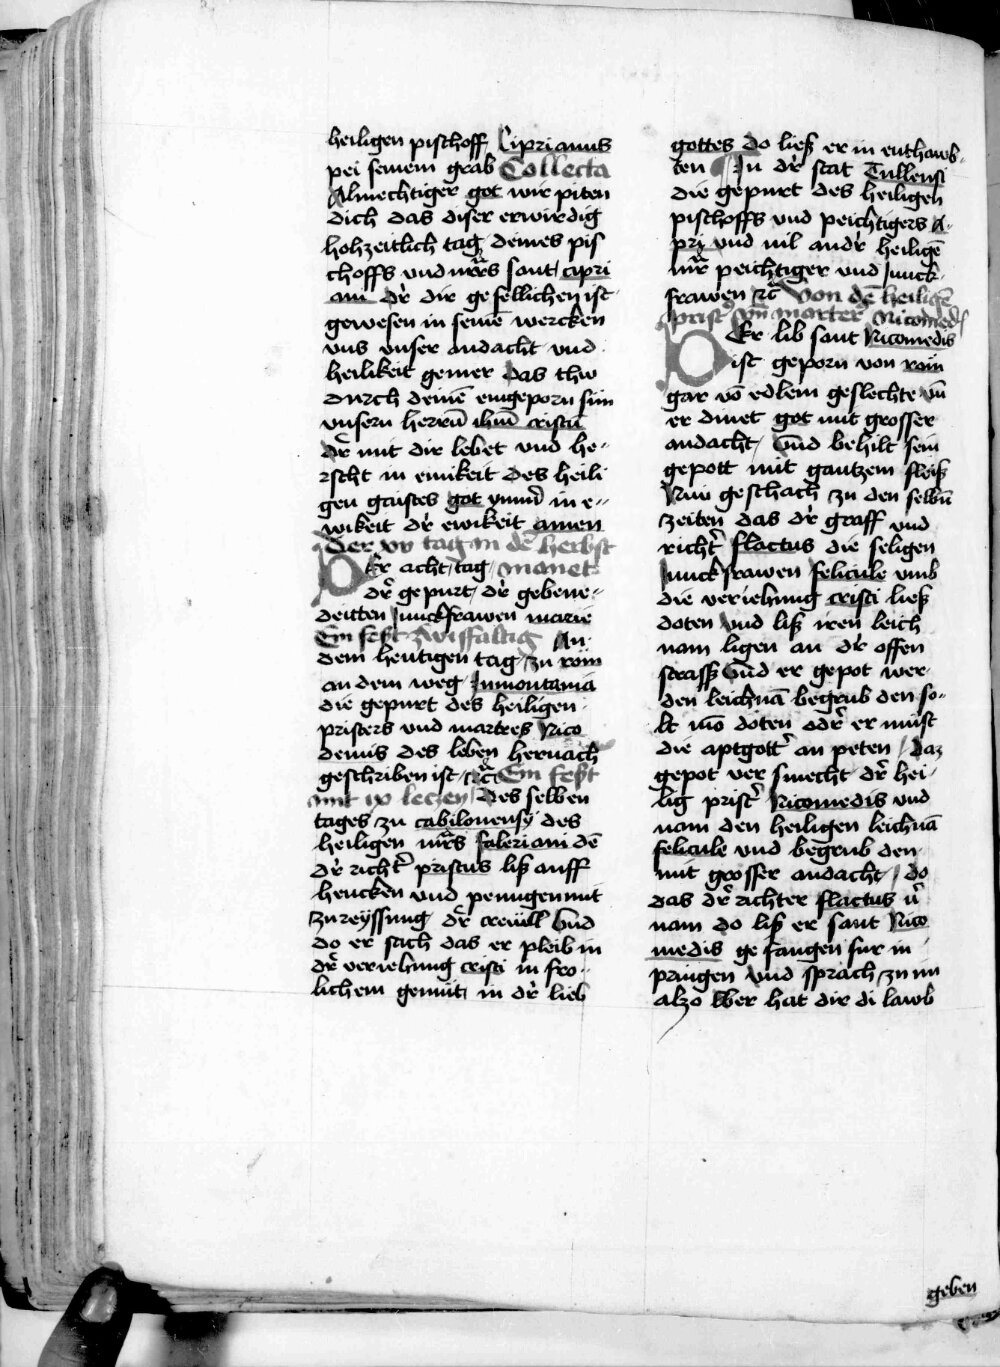 heiligen pischoff Ciprianus
pei seinem grab Collecta
Almechtiger got wir piten
dich das diser erwirdig
hohzeitlich tag deines pis
choffs vnd mr̃rs sant cipri
ani dˀ dir gesellichen ist
gewesen in seinē wercken
vns vnser andacht vnd
heilikeit gemer das thu
durch deinē eingeporn sun
vnsern herrn̄ ihm̄ cristū
dˀ mit dir lebet vnd he-
rscht in einikeit des heili
gen gaistes got vnnd in e-
wikeit dˀ ewikeit amen
Der xv tag in dē herbst
DEr acht tag monet
dˀ gepurt dˀ gebene-
deitten junckfrawen marie
Ein fest zwiffaltig An
dem heutigen tag zu rom
an dem weg Inmontania
die gepurt des heiligen
pristers vnd martres Nico
demis des leben hernach
geschriben ist ꝛc̃ Ein fest
mit ix leczen Des selben
tages zu cabilonensy des
heiligen mr̃rs faleriani dē
dˀ richtˀ priscus lis auff
hencken vnd peinigen mit
zureyssung dˀ crewll Vnd
do er sach das er pleib in
dˀ veriehung cristi in fro-
lichem gemüt in dˀ lieb
gottes do lies er in enthawb-
ten In dˀ stat Tullensi
die gepurt des heiligen
pischoffs vnd peichtigers A-
pri vnd uil andˀ heiligē
mr̃r peichtiger vnd junck
frawen ꝛc̃ Von dē heiligē
pristˀ vn̄ marterˀ Nicomedˀ
DEr lib sant Nicomedis
ist geporn von rom
gar vō edlem geslechte vn̄
er dinet got mit grosser
andacht Vnd behilt sein
gepott mit gantzem fleis
Nun geschach zu den selbn̄
zeiten das dˀ graff vnd
richtˀ flactus die seligen
junckfrawen felicule vmb
die veriehung cristi lies
doten vnd lis iren leich
nam ligen an dˀ offen
strass Vnd er gepot wer
den leichnā begrub den so-
lt mō doten odˀ er müst
die aptgottˀ an peten Daz
gepot ver smecht dˀ hei-
lig pristˀ Nicomedis vnd
nam den heiligen leichnā
felicule vnd begrub den
mit grosser andacht do
das dˀ richter flactus vˀ
nam do lis er sant Nico
medis gefangen fur in
pringen vnd sprach zu im
alzo Wer hat dir di lawb
geben